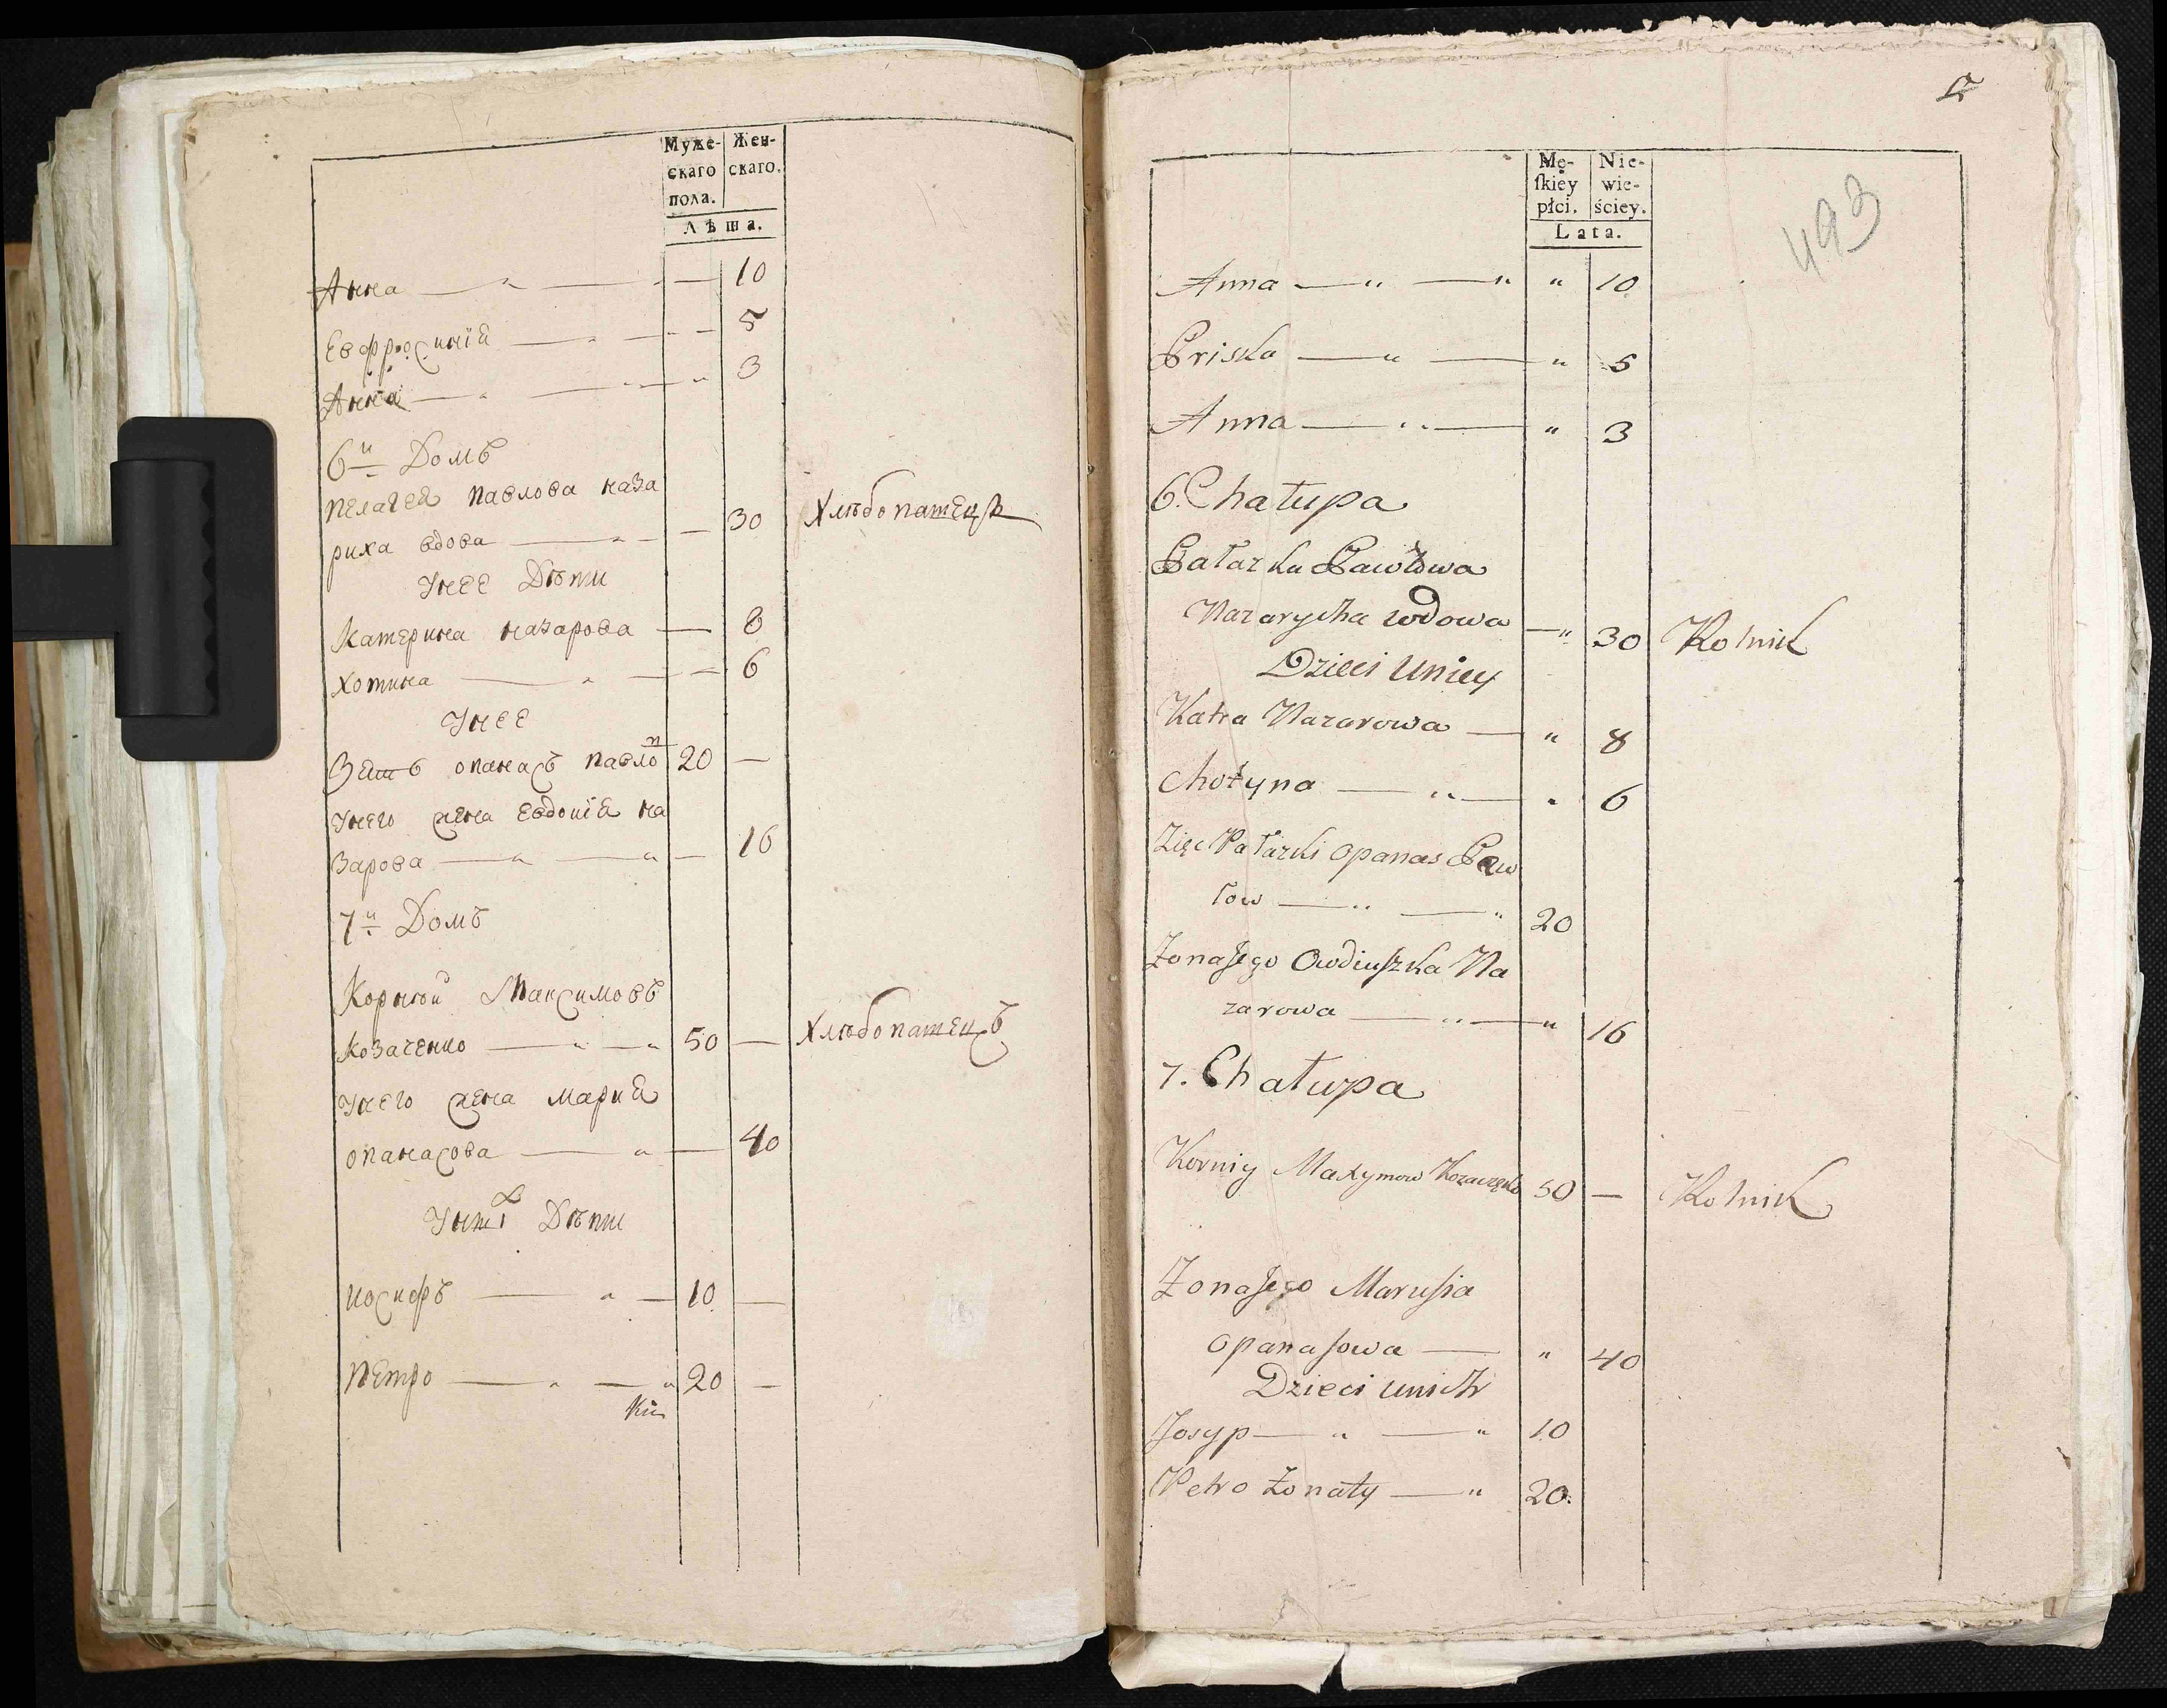 Муже- Жен-
скаго скаго.
пола.
Лѣта.
Анна — " — — 10
Евфросинiя — " — — 5
Анна — " — " 3
6й Домъ
Пелагея Павлова наза
риха вдова — " — 30 Хлѣбопашецъ
У нее Дѣти
Катерина назарова — 8
Хотина — " — — 6
У нее
Зять опанасъ павло 20 —
У него жена Евдокiя на
зарова — " — " — 16
7й Домъ
Корнѣй Максимовъ
Козаченко — " — " 50 — Хлѣбопашецъ
У него жена Мария
опанасова — " — 40
Дѣти
иосифъ — " — 10 —
Петро — " — " 20 —
17
493
Mę- Nie-
skiey wie-
płci. ściey.
Lata.
Anna — " — " " 10
Priska — " — " 5
Anna — " — " 3
6. Chałupa
Pałazka Pawłowa
Nazarycha wdowa — " 30 Rolnik
Dzieci u niey
Katra Nazarowa — " 8
Chotyna — " — " 6
Zięć Pałazki Opanas Paw
łow — " — " 20
Żona Jego Owdiuszka Na
zarowa — " — " 16
7. Chałupa
Korniy Maxymow Kozaczęko 50 — Rolnik
Żona Jego Marusia
Opanasowa — " 40
Dzieci u nich
Josyp — " — " 10
Petro żonaty — " 20.